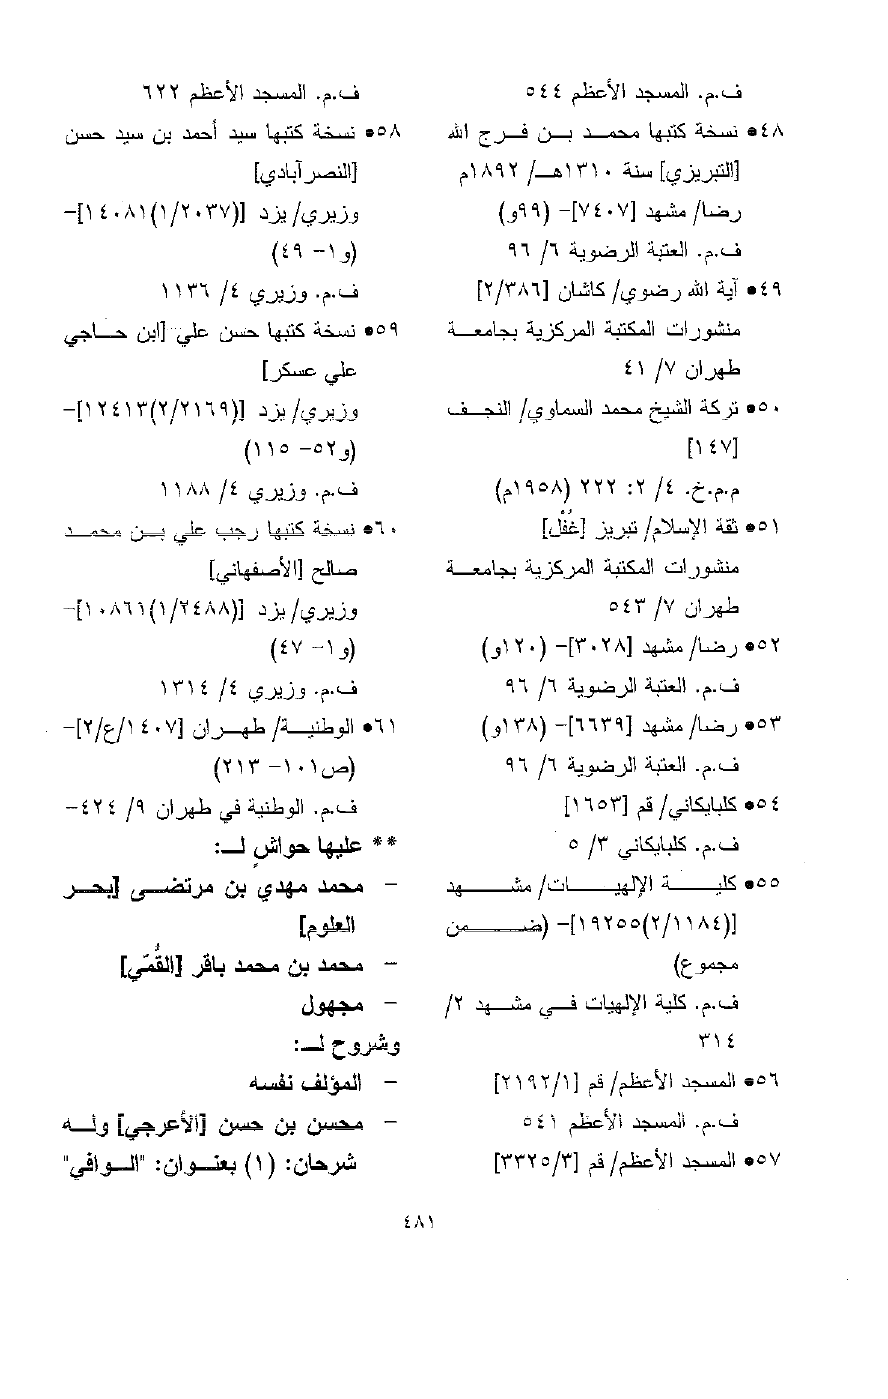 ف.م. المسجد الأعظم ٥٤٤
٤٨• نسخة كتبها محمد بن فرج الله
[التبريزي] سنة ١٣١٠هـ/ ١٨٩٢م
رضا/ مشهد [٧٤٠٧]- (٩٩و)
ف.م. العتبة الرضوية ٦/ ٩٦
٤٩• آية الله رضوي/ كاشان [٢/٣٨٦]
منشورات المكتبة المركزية بجامعة
طهران ٧/ ٤١
٥٠• تركة الشيخ محمد السماوي/ النجف
[١٤٧]
م.م.خ. ٤/ ٢: ٢٢٢ (١٩٥٨م)
٥١• ثقة الإسلام/ تبريز [غُفْل]
منشورات المكتبة المركزية بجامعة
طهران ٧/ ٥٤٣
٥٢• رضا/ مشهد [٣٠٢٨]- (١٢٠و)
ف.م. العتبة الرضوية ٦/ ٩٦
٥٣• رضا/ مشهد [٦٦٣٩]- (١٣٨و)
ف.م. العتبة الرضوية ٦/ ٩٦
٥٤• كلبايكاني/ قم [١٦٥٣]
ف.م. كلبايكاني ٣/ ٥
٥٥• كلية الإلهيات/ مشهد
[(٢/١١٨٤)١٩٢٥٥]- (ضمن
مجموع)
ف.م. كلية الإلهيات في مشهد ٢/
٣١٤
٥٦• المسجد الأعظم/ قم [٢١٩٢/١]
ف.م. المسجد الأعظم ٥٤١
٥٧• المسجد الأعظم/ قم [٣٣٢٥/٣]
ف.م. المسجد الأعظم ٦٢٢
٥٨• نسخة كتبها سيد أحمد بن سيد حسن
[النصرآبادي]
وزيري/ يزد [(١/٢٠٣٧)١٤٠٨١]-
(و١- ٤٩)
ف.م. وزيري ٤/ ١١٣٦
٥٩• نسخة كتبها حسن علي [ابن حاجي
علي عسكر]
وزيري/ يزد [(٢/٢١٦٩)١٢٤١٣]-
(و٥٢- ١١٥)
ف.م. وزيري ٤/ ١١٨٨
٦٠• نسخة كتبها رجب علي بن محمد
صالح [الأصفهاني]
وزيري/ يزد [(١/٢٤٨٨)١٠٨٦١]-
(و١- ٤٧)
ف.م. وزيري ٤/ ١٣١٤
٦١• الوطنية/ طهران [١٤٠٧/ع/٢]-
(ص١٠١- ٢١٣)
ف.م. الوطنية في طهران ٩/ ٤٢٤-
** عليها حواشٍ لـ:
- محمد مهدي بن مرتضى [بحر
العلوم]
- محمد بن محمد باقر [القُمّي]
- مجهول
وشروح لـ:
- المؤلف نفسه
- محسن بن حسن [الأعرجي] وله
شرحان: (١) بعنوان: "الوافي"
٤٨١